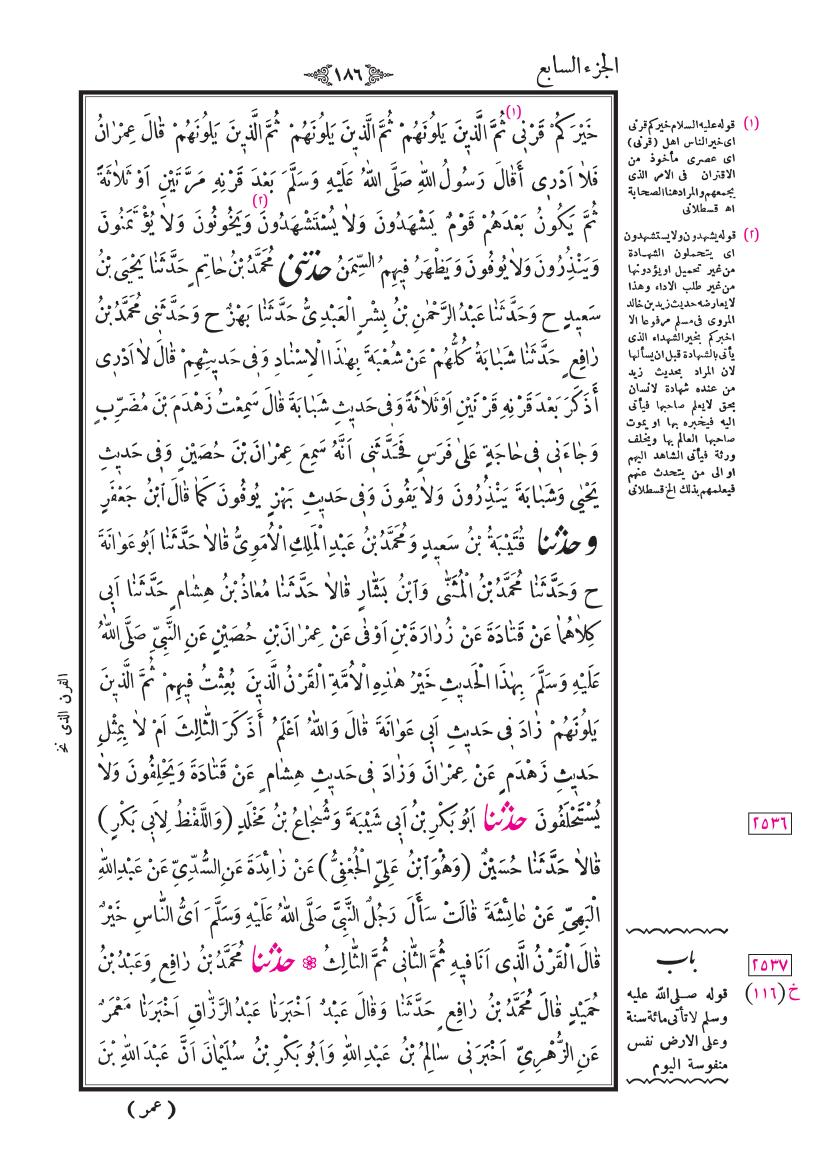 الجزء السابع
﴿١٨٦﴾
خَيْرَكُمْ قَرْنِى (١) ثُمَّ الَّذِينَ يَلُونَهُمْ ثُمَّ الَّذِينَ يَلُونَهُمْ ثُمَّ الَّذِينَ يَلُونَهُمْ قَالَ عِمْرَانُ
فَلَا اَدْرِى أَقَالَ رَسُولُ اللهِ صَلَّى اللهُ عَلَيْهِ وَسَلَّمَ بَعْدَ قَرْنِهِ مَرَّتَيْنِ اَوْ ثَلَاثَةً
ثُمَّ يَكُونُ بَعْدَهُمْ قَوْمٌ يَشْهَدُونَ وَلَا يُسْتَشْهَدُونَ (٢) وَيَخُونُونَ وَلَا يُؤْتَمَنُونَ
وَيَنْذِرُونَ وَلَا يُوفُونَ وَيَظْهَرُ فِيهِمُ السِّمَنُ حَدَّثَنِى مُحَمَّدُ بْنُ حَاتِمٍ حَدَّثَنَا يَحْيَى بْنُ
سَعِيدٍ ح وَحَدَّثَنَا عَبْدُ الرَّحْمٰنِ بْنُ بِشْرٍ الْعَبْدِىُّ حَدَّثَنَا بَهْزٌ ح وَحَدَّثَنِى مُحَمَّدُ بْنُ
رَافِعٍ حَدَّثَنَا شَبَابَةُ كُلُّهُمْ عَنْ شُعْبَةَ بِهٰذَا الْاِسْنَادِ وَفِى حَدِيثِهِمْ قَالَ لَا اَدْرِى
أَذَكَرَ بَعْدَ قَرْنِهِ قَرْنَيْنِ اَوْ ثَلَاثَةً وَفِى حَدِيثِ شَبَابَةَ قَالَ سَمِعْتُ زَهْدَمَ بْنَ مُضَرِّبٍ
وَجَاءَنِى فِى حَاجَةٍ عَلٰى فَرَسٍ فَحَدَّثَنِى اَنَّهُ سَمِعَ عِمْرَانَ بْنَ حُصَيْنٍ وَفِى حَدِيثِ
يَحْيٰى وَشَبَابَةَ يَنْذِرُونَ وَلَا يَفُونَ وَفِى حَدِيثِ بَهْزٍ يُوفُونَ كَمَا قَالَ ابْنُ جَعْفَرٍ
وَحَدَّثَنَا قُتَيْبَةُ بْنُ سَعِيدٍ وَمُحَمَّدُ بْنُ عَبْدِ الْمَلِكِ الْاُمَوِىُّ قَالَا حَدَّثَنَا اَبُو عَوَانَةَ
ح وَحَدَّثَنَا مُحَمَّدُ بْنُ الْمُثَنّٰى وَابْنُ بَشَّارٍ قَالَا حَدَّثَنَا مُعَاذُ بْنُ هِشَامٍ حَدَّثَنَا اَبِى
كِلَاهُمَا عَنْ قَتَادَةَ عَنْ زُرَارَةَ بْنِ اَوْفٰى عَنْ عِمْرَانَ بْنِ حُصَيْنٍ عَنِ النَّبِيِّ صَلَّى اللهُ
عَلَيْهِ وَسَلَّمَ بِهٰذَا الْحَدِيثِ خَيْرُ هٰذِهِ الْاُمَّةِ الْقَرْنُ الَّذِينَ بُعِثْتُ فِيهِمْ ثُمَّ الَّذِينَ
يَلُونَهُمْ زَادَ فِى حَدِيثِ اَبِى عَوَانَةَ قَالَ وَاللهُ اَعْلَمُ أَذَكَرَ الثَّالِثَ اَمْ لَا بِمِثْلِ
حَدِيثِ زَهْدَمٍ عَنْ عِمْرَانَ وَزَادَ فِى حَدِيثِ هِشَامٍ عَنْ قَتَادَةَ وَيَحْلِفُونَ وَلَا
يُسْتَحْلَفُونَ حَدَّثَنَا اَبُو بَكْرِ بْنُ اَبِى شَيْبَةَ وَشُجَاعُ بْنُ مَخْلَدٍ (وَاللَّفْظُ لِاَبِى بَكْرٍ)
قَالَا حَدَّثَنَا حُسَيْنٌ (وَهُوَ ابْنُ عَلِيٍّ الْجُعْفِيُّ) عَنْ زَائِدَةَ عَنِ السُّدِّيِّ عَنْ عَبْدِ اللهِ
الْبَهِيِّ عَنْ عَائِشَةَ قَالَتْ سَأَلَ رَجُلٌ النَّبِيَّ صَلَّى اللهُ عَلَيْهِ وَسَلَّمَ اَىُّ النَّاسِ خَيْرٌ
قَالَ الْقَرْنُ الَّذِى اَنَا فِيهِ ثُمَّ الثَّانِى ثُمَّ الثَّالِثُ * حَدَّثَنَا مُحَمَّدُ بْنُ رَافِعٍ وَعَبْدُ بْنُ
حُمَيْدٍ قَالَ مُحَمَّدُ بْنُ رَافِعٍ حَدَّثَنَا وَقَالَ عَبْدٌ اَخْبَرَنَا عَبْدُ الرَّزَّاقِ اَخْبَرَنَا مَعْمَرٌ
عَنِ الزُّهْرِيِّ اَخْبَرَنِى سَالِمُ بْنُ عَبْدِ اللهِ وَاَبُو بَكْرِ بْنُ سُلَيْمَانَ اَنَّ عَبْدَ اللهِ بْنَ
(عمر)
(١) قوله عليه السلام خيركم قرنى
اى خير الناس اهل (قرنى)
اى عصرى مأخوذ من
الاقتران فى الامر الذى
يجمعهم والمراد هنا الصحابة
اه قسطلانى
(٢) قوله يشهدون ولا يستشهدون
اى يتحملون الشهادة
من غير تحميل او يؤدونها
من غير طلب الاداء وهذا
لا يعارضه حديث زيد بن خالد
المروى فى مسلم مرفوعا الا
اخبركم بخير الشهداء الذى
يأتى بالشهادة قبل ان يسألها
لان المراد بحديث زيد
من عنده شهادة لانسان
بحق لا يعلم صاحبها فيأتى
اليه فيخبره بها او يموت
صاحبها العالم بها ويخلف
ورثة فيأتى الشاهد اليهم
او الى من يتحدث عنهم
فيعلمهم بذلك الخ قسطلانى
القرن الذى نخ
٢٥٣٦
٢٥٣٧
خ (١١٦)
باب
قوله صلى الله عليه
وسلم لا تأتى مائة سنة
وعلى الارض نفس
منفوسة اليوم